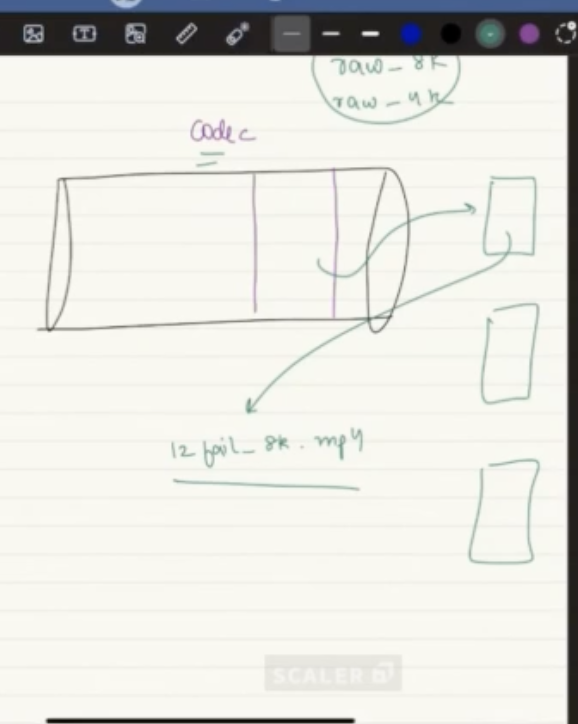 raw_8k
raw_4k
Codec
12 fail_8k.mp4
SCALER